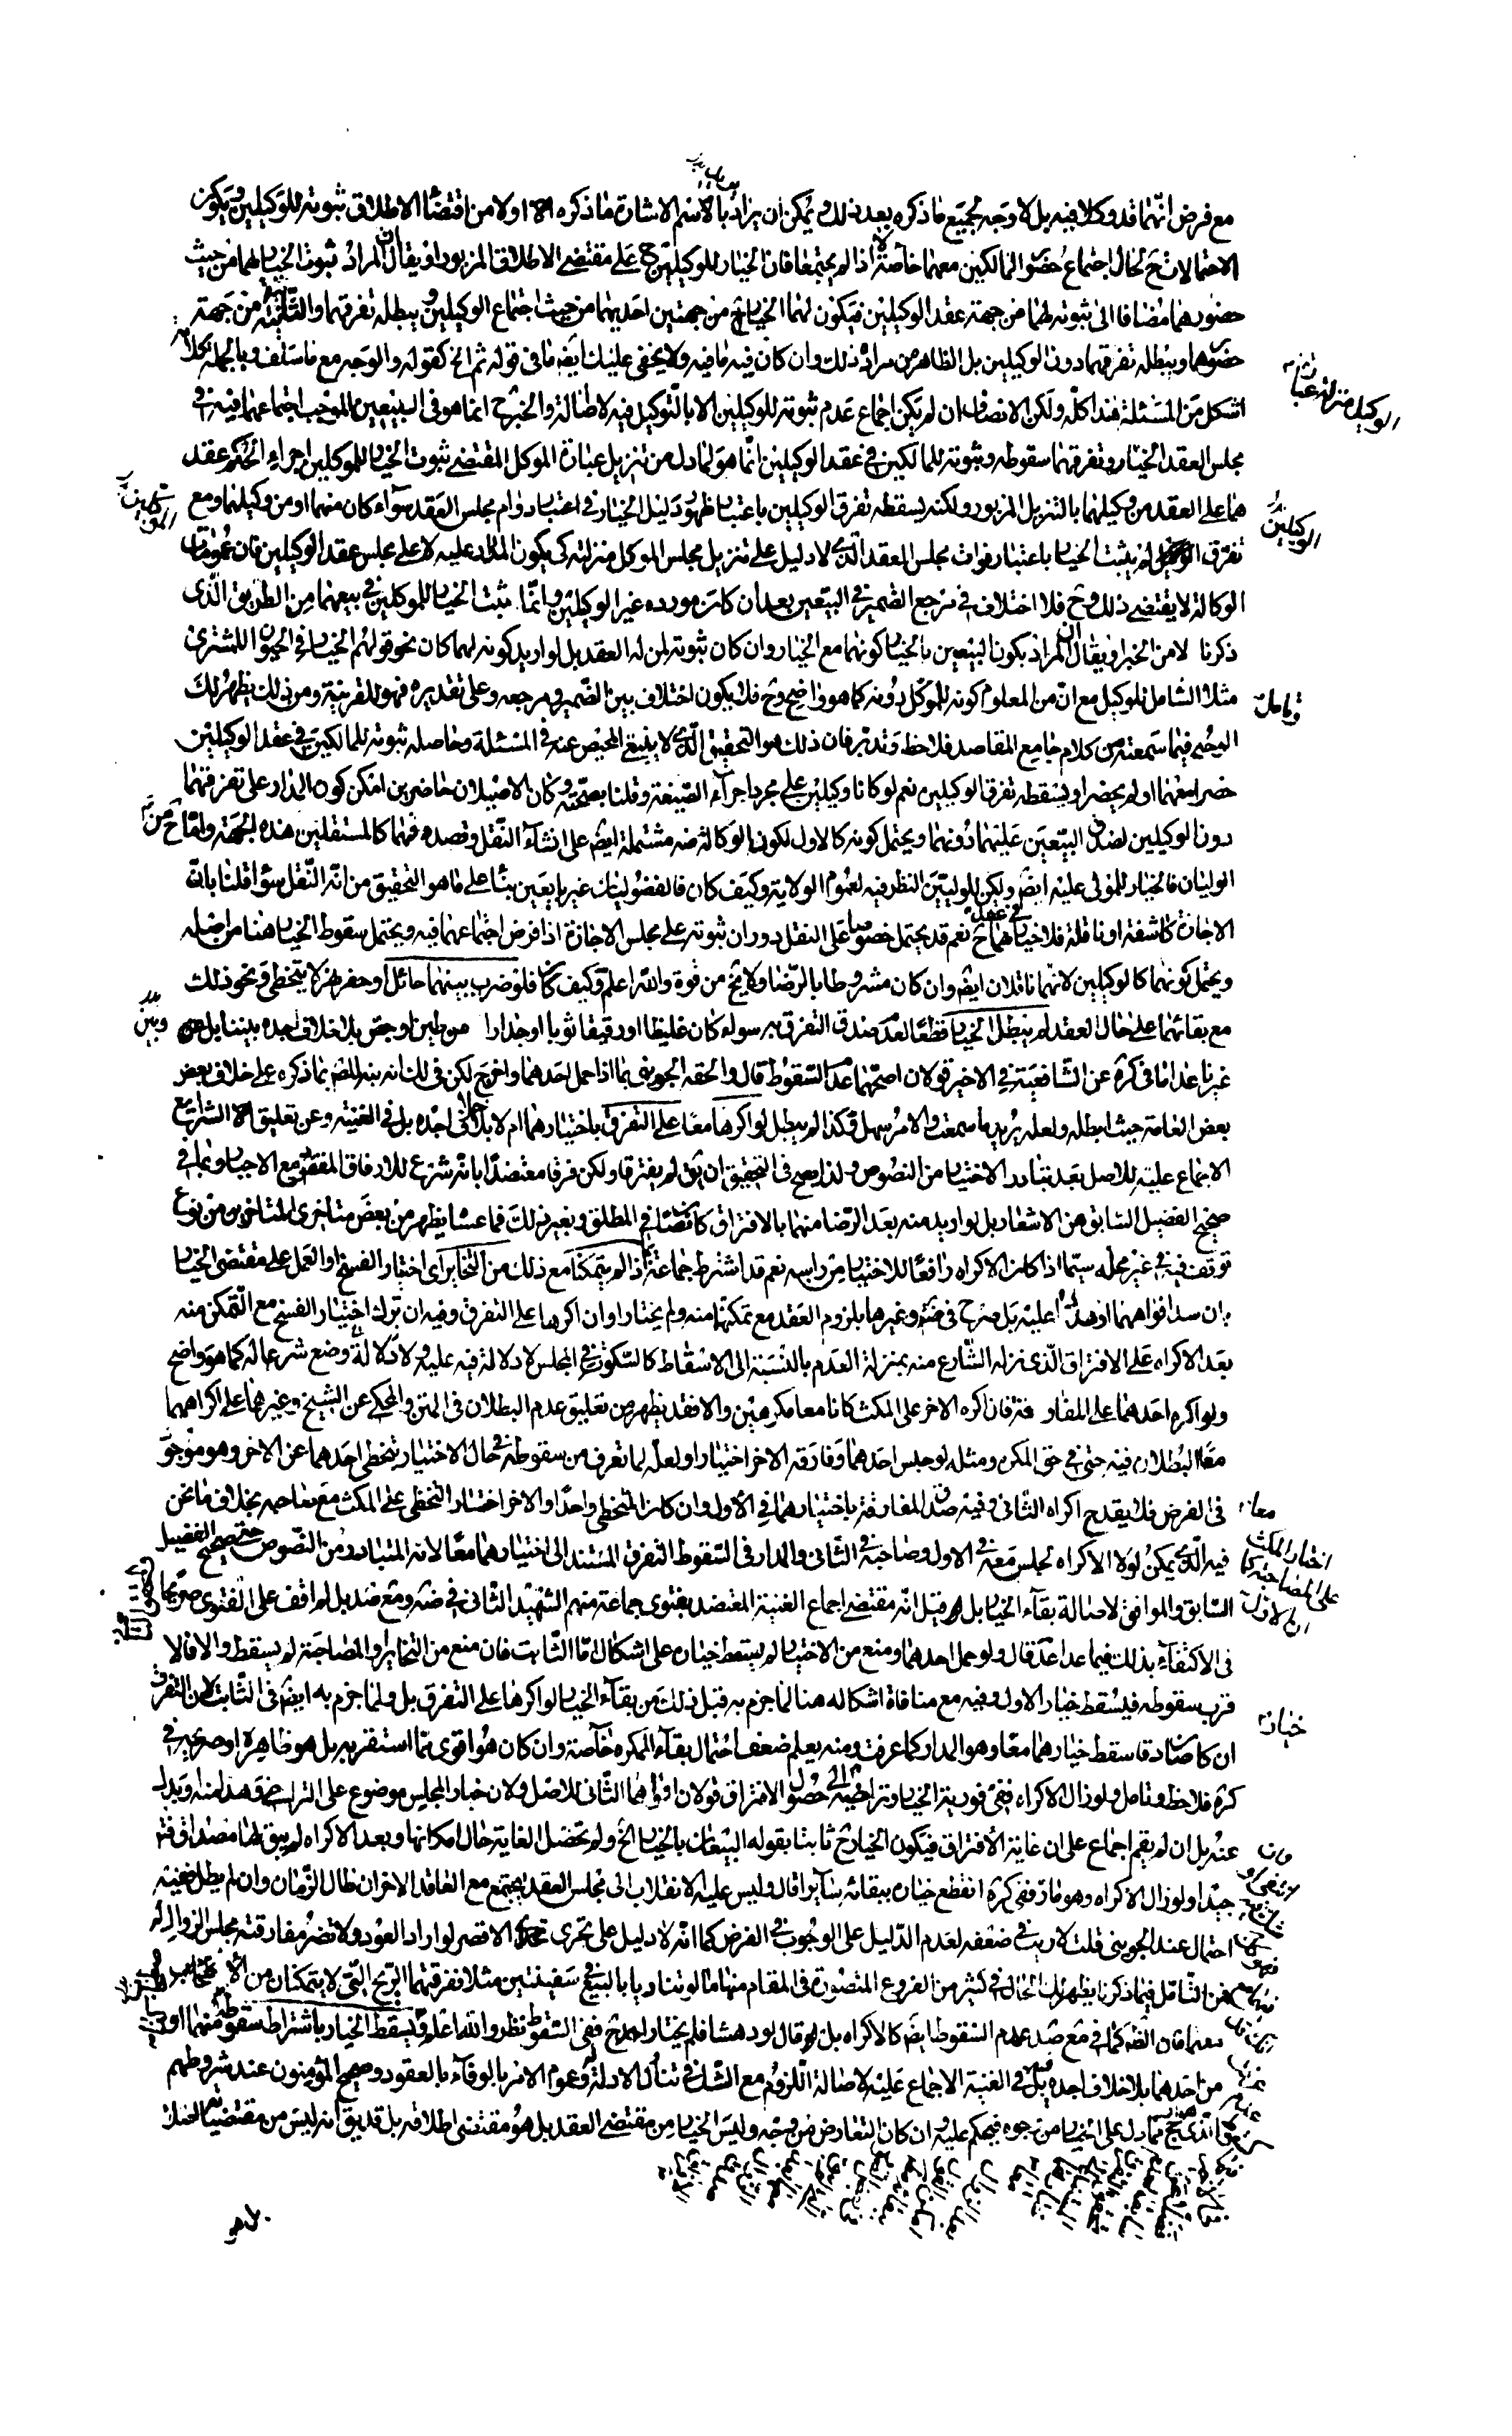 مع فرض انهما قد وكلا فيه بل لا وجه لجميع ما ذكره بعد ذلك و يمكن ان يراد بالاسم الاشارة ما ذكره اولا من اقتضاء الاطلاق ثبوته للوكيلين ويكون
الاحتمالان ح لحال اجتماع حضور المالكين معهما خاصة اذا لم يجتمعا فان الخيار للوكيلين ح على مقتضى الاطلاق المزبور او يقال ان المراد ثبوت الخيار لهما من حيث
حضورهما مضافا الى ثبوته لهما من جهة عقد الوكيلين فيكون لهما الخيار ح من جهتين احديهما من حيث اجتماع الوكيلين و يبطله تفرقهما والثانية من جهة
حضورهما ويبطله تفرقهما دون الوكيلين بل الظاهر من مراده ذلك وان كان فيه ما فيه ولا يخفى عليك ايضا ما في قوله ثم الخ كقوله والوجه مع ما سلف وبالجملة كلامه
اشكل من المسئلة هذا كله ولكن الانصاف ان لم يكن اجماع عدم ثبوته للوكيلين الا بالتوكيل فيه لاصالة والخبر ح انما هو في البيعين الموجب اجتماعهما فيه في
مجلس العقد الخيار وتفرقهما سقوطه وثبوته للمالكين في عقد الوكيلين انما هو لما دل من تنزيل عبارة الموكل المقتضى ثبوت الخيار للموكلين اجراء الحكم عقد
هما على العقد من وكيلهما بالتنزيل المزبور ولكنه يسقطه تفرق الوكيلين باعتبار ظهور دليل الخيار في اعتبار دوام مجلس العقد سواء كان منهما او من وكيلهما ومع
تفرق لم يثبت الخيار باعتبار فوات مجلس العقد الذي لا دليل على تنزيل مجلس الموكل منزلته كي يكون المدار عليه لا على مجلس عقد الوكيلين فان عمومات
الوكالة لا يقتضى ذلك وح فلا اختلاف في مرجع الضمير في البيعين بعد ان كان مورده غير الوكيلين وانما ثبت الخيار للموكلين في بيعهما من الطريق الذي
ذكرنا لا من الخبر او يقال ان المراد بكون البيعين بالخيار كونهما مع الخيار وان كان ثبوته لمن له العقد بل لو اريد كونه لهما كان نحو قولهم الخيار في الحيوان للمشترى
مثلا الشامل للوكيل مع ان من المعلوم كونه للموكل دونه كما هو واضح وح فلا يكون اختلاف بين الضمير ومرجعه وعلى تقديره فهو للقرينة ومن ذلك يظهر لك
الوجه فيما سمعته من كلام جامع المقاصد فلاحظ وتدبر فان ذلك هو التحقيق الذي لا ينبغي المحيص عنه في المسئلة وحاصله ثبوته للمالكين في عقد الوكيلين
حضرا معهما او لم يحضرا ويسقطه تفرق الوكيلين نعم لو كانا وكيلين على مجرد اجراء الصيغة وقلنا بصحته و كان الاصيلان حاضرين امكن كون المدار على تفرقهما
دون الوكيلين لصدق البيعين عليهما دونهما ويحتمل كونه كالاول لكون الوكالة مشتملة ايضا على انشاء النقل وقصده فهما كالمستقلين من هذه الجهة واما
الوليان فالخيار للمولى عليه ايضا ولكن للوليين النظر فيه لعموم الولاية وكيف كان فالفضوليان غير بايعين بناء على ما هو التحقيق من انه النقل سواء قلنا بان
الاجازة كاشفة او ناقلة فلا خيار في عقدهما ح نعم قد يحتمل خصوصا على النقل دوران ثبوته على مجلس الاجازة اذا فرض اجتماعهما فيه ويحتمل سقوط الخيار هنا من اصله
ويحتمل كونهما كالوكيلين لانهما ناقلان ايضا وان كان مشروطا بالرضا ولا يخ من قوة والله اعلم وكيف كان فلو ضرب بينهما حائل او حفر نهر لا يتخطى ونحو ذلك
مع بقائهما على حال العقد لم يبطل الخيار قطعا لعدم صدق التفرق به سواء كان غليظا او رقيقا ثوبا او جدارا من طين او جص بلا خلاف اجده بيننا بل
غيرنا عدا ما في كره عن الشافعية في الاخير قولان اصحهما عدم السقوط قال والحقه الجويني بما اذا حمل احدهما واخرج لكن في لك انه نبه المص بما ذكره على خلاف بعض
بعض العامة حيث ابطله ولعله يريد ما سمعت والامر سهل وكذا لم يبطل لو اكرها معا على التفرق باختيارهما ام لا بلا خلاف اجده بل في الغنية وعن تعليق الشرايع
الاجماع عليه للاصل بعد تبادر الاختيار من النصوص ولذا يصح في التحقيق ان يق لم يفترقا ولكن فرقا معتضدا بانه شرع للارفاق المفقود مع الاجبار وبما في
صحيح الفضيل السابق من الاشعار بل لو اريد منه بعد الرضا منهما بالافتراق كان نصا في المطلق وبغير ذلك فما عساه يظهر من بعض متاخرى المتاخرين من نوع
توقف فيه في غير محله سيما اذا كان الاكراه رافعا للاختيار من راسه نعم قد اشترط جماعة اذا لم يتمكنا مع ذلك من التخاير اى اختيار الفسخ او العمل على مقتضى الخيار
بان سد افواههما او هددا عليه بل صرح في ضه وغيرها بلزوم العقد مع تمكنهما منه ولم يختارا وان اكرها على التفرق وفيه ان ترك اختيار الفسخ مع التمكن منه
بعد الاكراه على الافتراق الذي نزله الشارع منه بمنزلة العدم بالنسبة الى الاسقاط كالسكوت في المجلس لا دلالة فيه عليه ولا دلالة وضع شرعا له كما هو واضح
ولو اكره احدهما على المفارقة فان اكره الاخر على المكث كانا معا مكرهين والا فقد يظهر من تعليق عدم البطلان في المتن والمحكى عن الشيخ وغيرهما على اكراههما
معا البطلان فيه حتى في حق المكره ومثله لو حبس احدهما وفارقه الاخر اختيارا ولعله لما تعرف من سقوطه في حال الاختيار بتخطى احدهما عن الاخر وهو موجود
في الفرض فلا يقدح اكراه الثاني وفيه صدق المفارقة باختيارهما في الاول وان كان المتخطى واحدا والاخر اختار التخطى على المكث مع صاحبه بخلاف ما نحن
فيه الذي يمكن لولا الاكراه لجلس معه في الاول وصاحبه في الثاني والمدار في السقوط التفرق المستند الى اختيارهما معا لانه المتبادر من النصوص حتى صحيح الفضيل
السابق والموافق لاصالة بقاء الخيار بل قيل انه مقتضى اجماع الغنية المعتضد بفتوى جماعة منهم الشهيد الثاني في ضه ومع ضد بل لم اقف على الفتوى صريحا
في الاكتفاء بذلك فيما عدا عد قال ولو حمل احدهما ومنع من الاختيار لم يسقط خياره على اشكال اما الثابت فان منع من التخاير او المصاحبة لم يسقط والا فالا
قرب سقوطه فيسقط خيار الاول وفيه مع منافاة اشكاله هنا لما جزم به قبل ذلك من بقاء الخيار لو اكرها على التفرق بل ولما جزم به ايضا في الثابت لان التفرق
ان كان صادقا سقط خيارهما معا وهو المدار كما عرفت ومنه يعلم ضعف احتمال بقاء المكره خاصة وان كان هو اقوى مما استقر به بل هو ظاهره او صريحه في
كره فلاحظ وتامل ولو زال الاكراه ففي فورية الخيار وتراخيه الى حصول الافتراق قولان اقواهما الثاني للاصل ولان خيار المجلس موضوع على التراخي وهذا منه او بدل
عنه بل ان لم يقم اجماع على ان غاية الافتراق فيكون الخيار ح ثابتا بقوله البيعان بالخيار الخ ولم تحصل الغاية حال امكانها وبعد الاكراه لم يبق لهما مصداق فت
جيدا ولو زال الاكراه وهو مار ففي كره انقطع خياره ببقائه سايرا قال وليس عليه الانقلاب الى مجلس العقد ليجتمع مع العاقد الاخر ان طال الزمان وان لم يطل ففيه
احتمال عند الجويني قلت لا ريب في ضعفه لعدم الدليل على الوجوب في الفرض كما انه لا دليل على تحرى الاقصر لو اراد العود ولا تضر مفارقته مجلس الزوال
فمن التامل فيما ذكرنا يظهر لك الحال في كثير من الفروع المتصورة في المقام منها ما لو تناديا بالبيع في سفينتين مثلا ففرقتهما الريح التي لا يتمكنان من
معها فان الظ كما في مع ضد عدم السقوط ايضا كالاكراه بل قال لو دهشا فلم يختارا ح ففي السقوط نظر والله اعلم ويسقط الخيار باشتراط سقوطه منهما او
من احدهما بلا خلاف اجده فيه بل في الغنية الاجماع عليه لاصالة اللزوم مع الشك في تناول الادلة وعموم الامر بالوفاء بالعقود وصحيح المؤمنون عند شروطهم
مما دل على الخيار من وجوه فيحكم عليه وان كان التعارض من وجه وليس الخيار من مقتضى العقد بل هو مقتضى اطلاقه بل قد يق انه ليس من مقتضياته
الوكيل منزلة عبارة
الوكيلين
وتامل
خيار